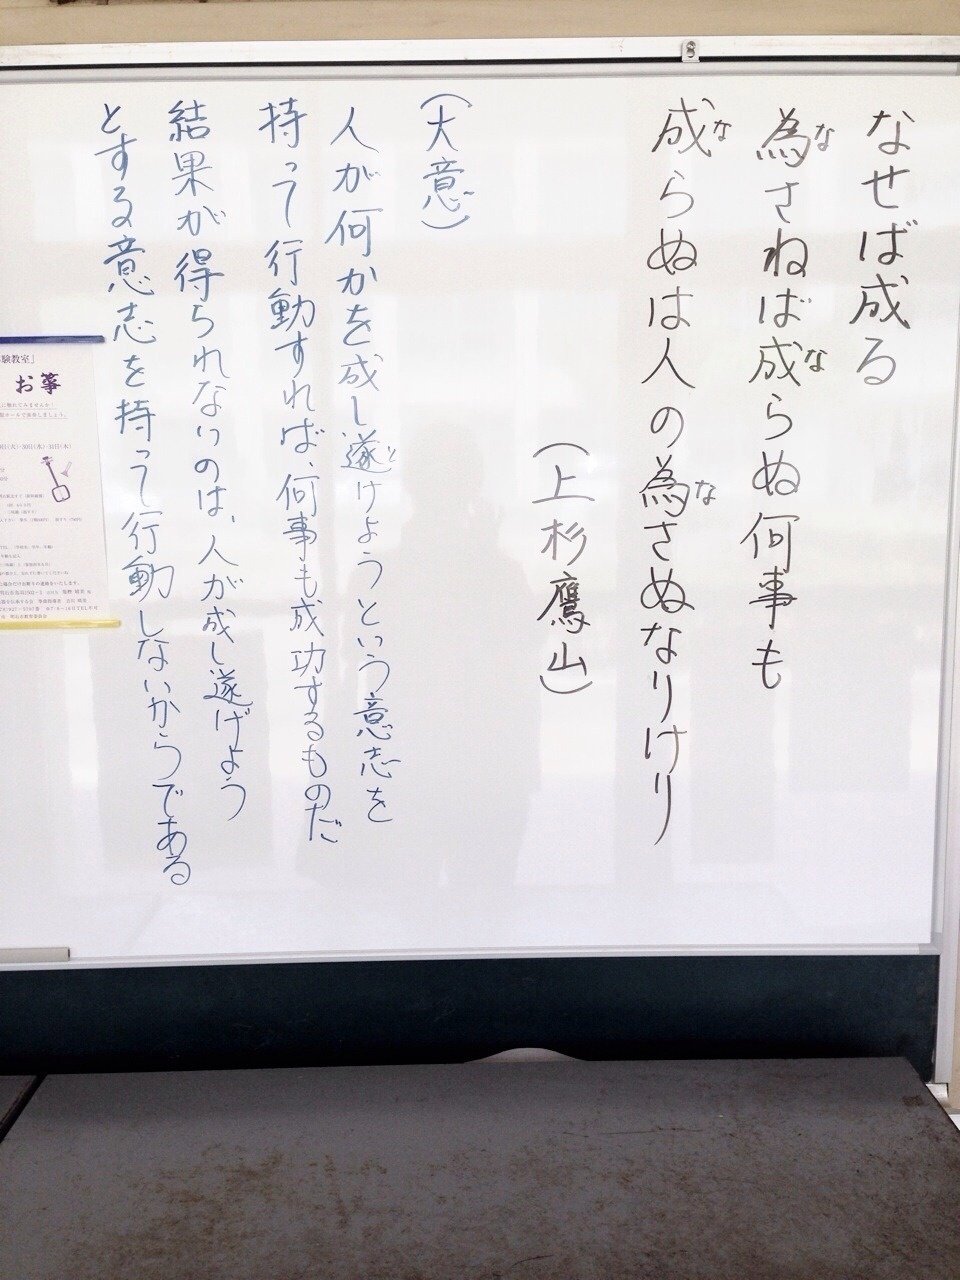 なせば成る
為さねば成らぬ何事も
成らぬは人の為さぬなりけり
（上杉鷹山）
（大意）
人が何かを成し遂けようという意志を
持って行動すれば、何事も成功するものだ
結果が得られないのは、人が成し遂げよう
とする意志を持って行動しないからである
験教室」
お箏